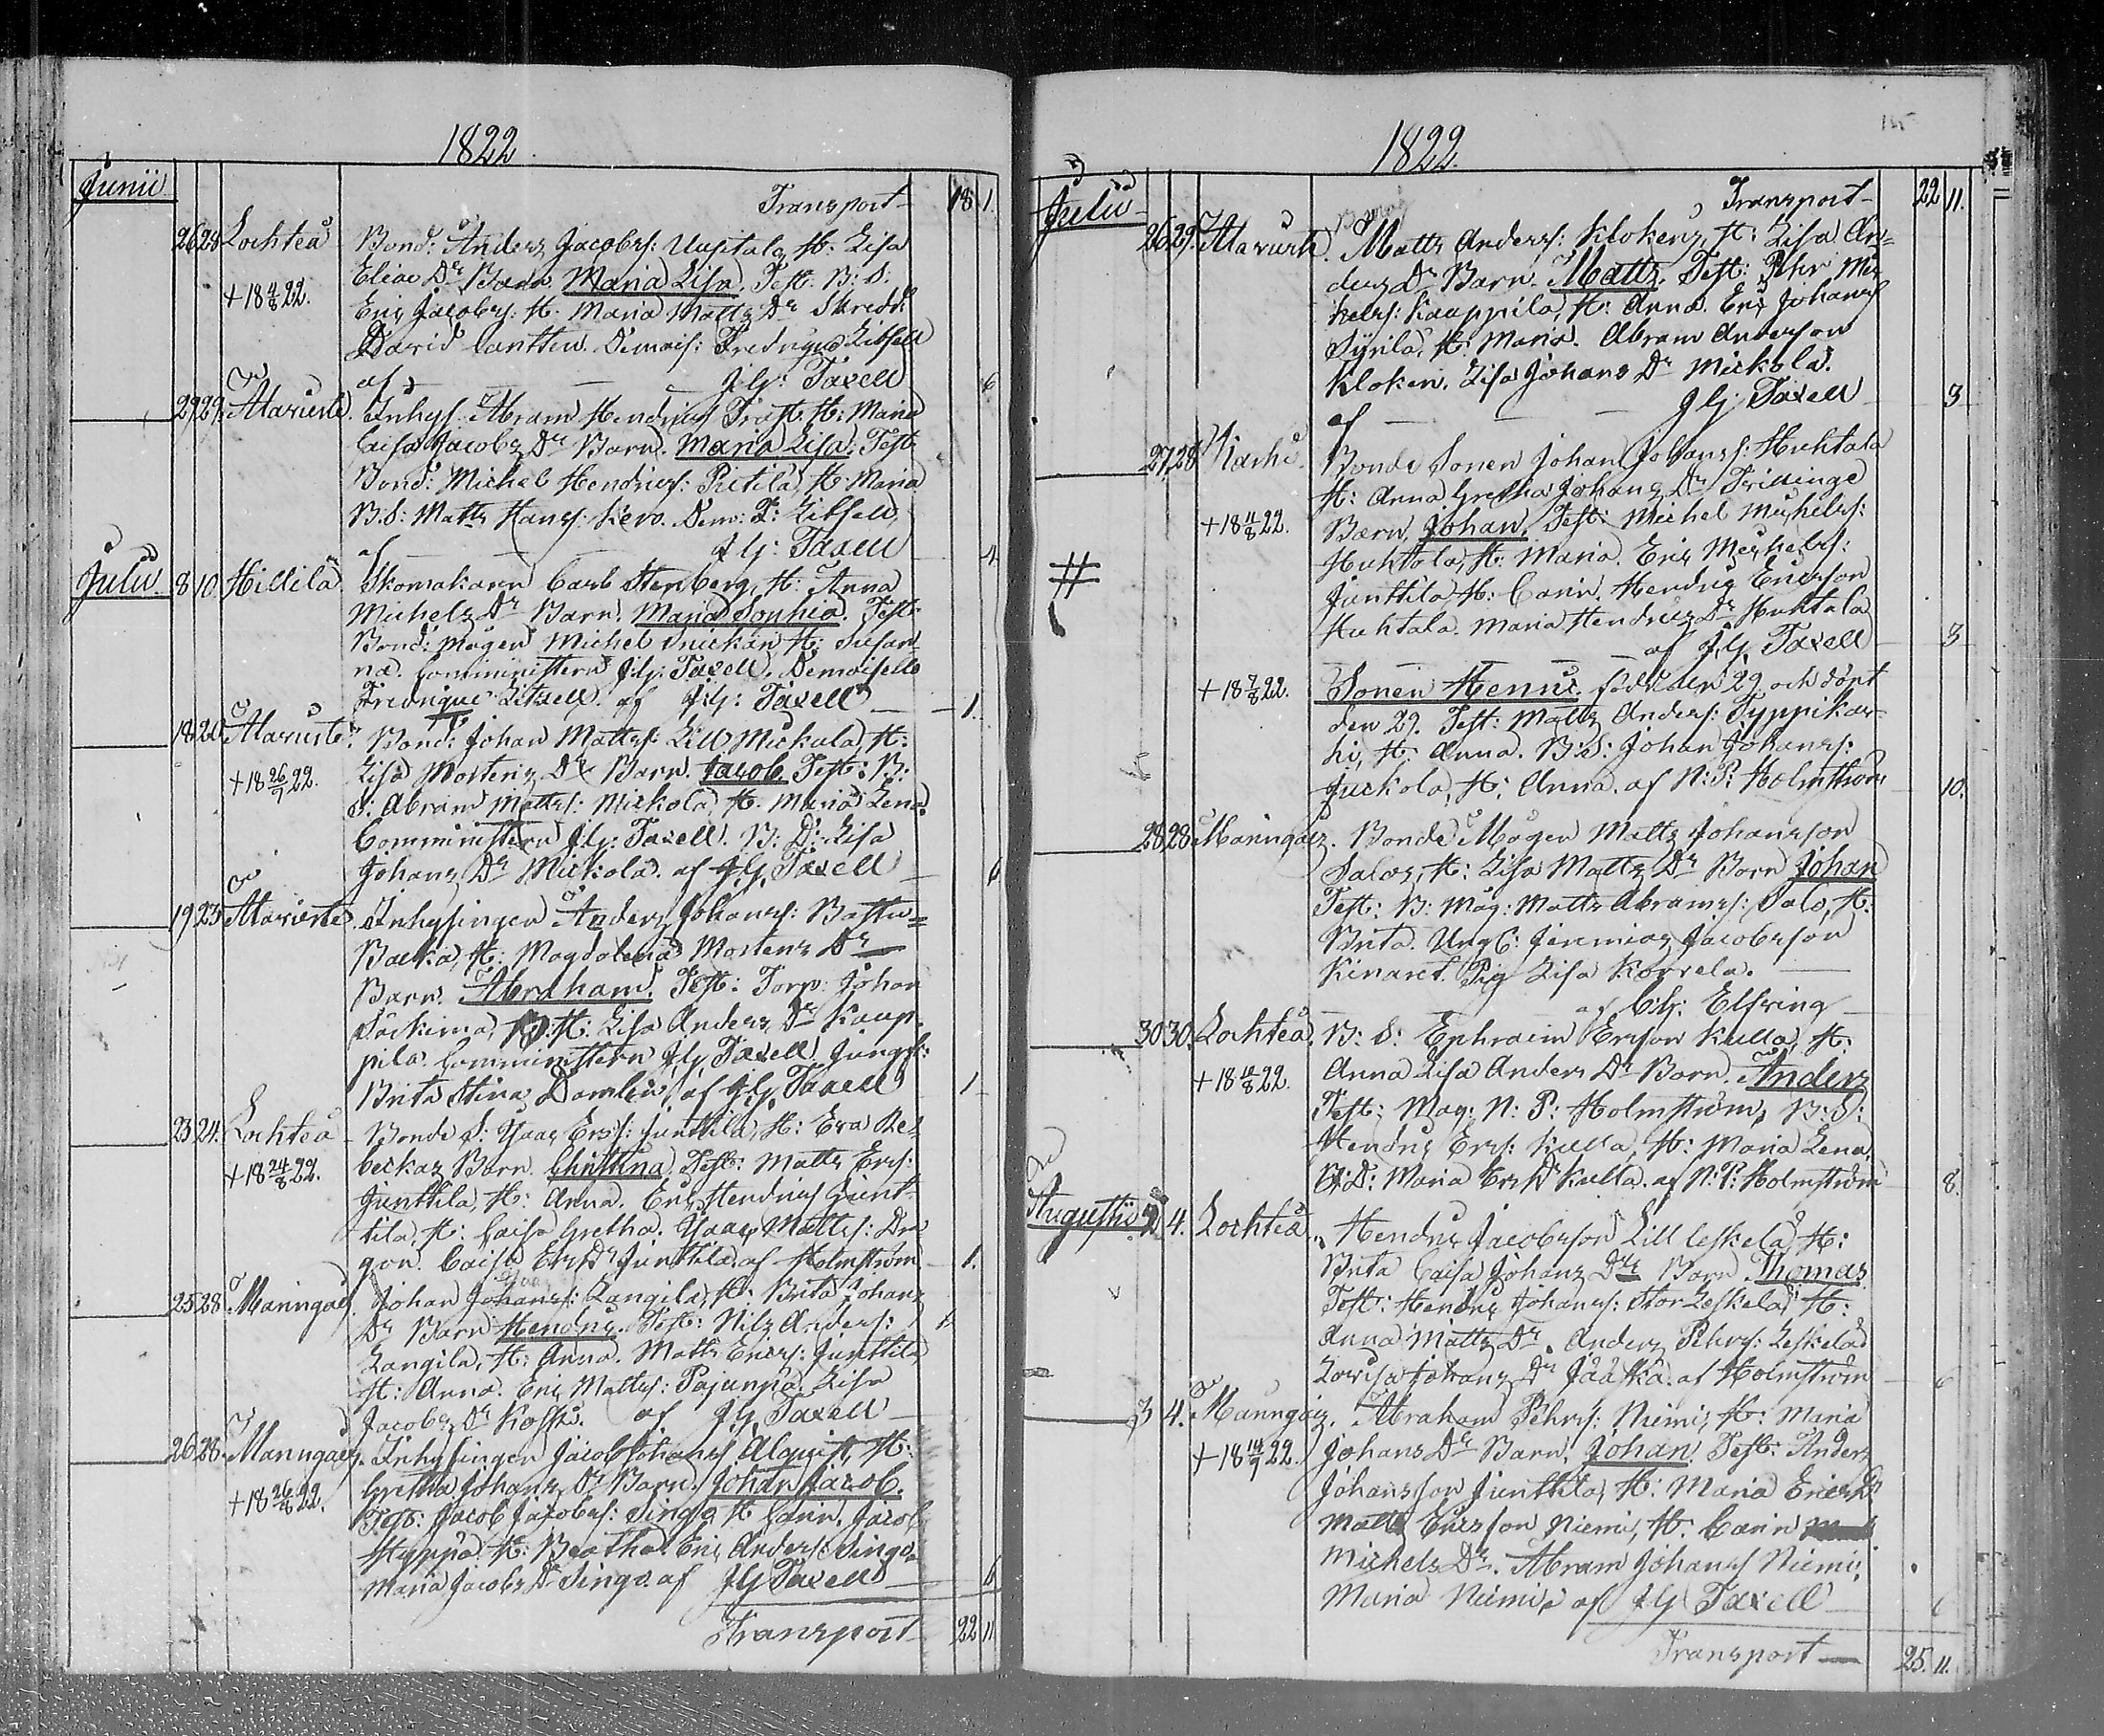 1822.
Junii
Transport 18 1.
26 28 Lochteå Bond: Anders Jacobss: Uusitalo, H: Lisa
Eliae Dr Barn Maria Lisa. Test: B: S:
+ 18 4/8 22. Eric Jacobss: H. Maria Matts Dr Skredd:
David Canttu. Demois: Fredrique Litzell
af J.G: Taxell 6
29 29 Alaviirte. Inhys: Abram Hendricss Trast H: Maria
Caisa Jacobs Dr Barn. Maria Lisa. Test.
Bond: Michel Hendricss: Pietilä, H: Maria
B.S: Matts Hanss: . Dem: F: Litzell,
af J.G: Taxell 4
Julii. 8 10 Hillilä Skomakaren Carl Stenberg, H: Anna
Michels Dr Barn. Maria Sophia. Test:
Bond: mågen Michel Snickari H: Susan-
na. Comministern J.G: Taxell. Demoiselle
Fredrique Litzell. af J.G: Taxell 1.
18 20 Alaviirte. Bond: Johan Mattss: Lill Mickola, H:
Lisa Mortens Dr Barn. Jacob. Test: B:
+ 18 26/7 22. S: Abram Mattss: Mickola, H. Maria Lena.
Comministern J.G: Taxell. B: D: Lisa
Johans Dr Mickola. af J.G. Taxell 6
19 23 Alaviirte. Inhysingen Anders Johanss: Bastu=
Backa, H: Magdalena Mortens Dr
Barn. Abraham. Test: Torp: Johan
H: Lisa Anders Dr Kaup-
pila. Comministern J.G. Taxell. Jungf:
Brita Stina af J.G. Taxell 1
23 24. Lochteå Bonde S: Ysaac Erss: Junttila, H: Eva Re-
beckas Barn Christina. Test: Matts Erss:
+ 18 24/8 22. Junttila, H: Anna. Eric Hendricss Junt-
tila, H: Caisa Gretha. Ysaac Mattss: Dra-
gon. Caisa Ers Dr Junttila. af Holmström 1.
25 28 Maringais. Johan Johanss: Langila, H: Brita Johans
Dr Barn Hendric. Test: Nils Anderss: 1
Langila, H: Anna. Matts Ericss: Junttila,
H: Anna. Eric Mattss: Pajunpä. Lisa
Jacobs Dr Koski. af J.G. Taxell
26 28. Maringais. Inhysingen Jacob Johanss Alqvist, H:
Gretha Johans Dr Barn. Johan Jacob.
+ 18 26/8 22. Test: Jacob Jacobss: Singo, H Carin. Jacob
Hyyppä. H: Beatha. Eric Anderss Singo.
Maria Jacobs Dr Singo. af J.G Taxell 6
Transport 22 11
1822.
Julii Transport 22 11.
26 29. Alaviirte. Matts Anderss: Klokens, H: Lisa An-
ders Dr Barn. Matts. Test: Pehr Mic-
helss: Kauppila, H: Anna. Eric Johanss
Syrilä, H: Maria. Abram Anderson
Kloken. Lisa Johans Dr Mickola.
af J G: Taxell 3
27 28 Karhi. Bonde Sonen Johan Johanss: Huhtala
H: Anna Gretha Johans Dr Trillinge
+ 18 4/8 22. Barn, Johan. Test: Michel Michelss:
Huhtala, H: Maria. Eric Michelss:
# Junttila, H: Carin. Hendric Ericsson
Huhtala. Maria Hendrics Dr Huhtala
af J.G. Taxell 3
+ 18 7/8 22. Sonen Henric. född den 29 och döpt
den 29. Test: Matts Anderss: Typpikar-
hi, H: Anna. B:S: Johan Johanss:
Juckola, H: Anna. af N: P: Holmström 10.
28 28 Maringais. Bonde Mågen Matts Johansson
Salos, H: Lisa Matts Dr Barn Johan
Test: B: Måg: Matts Abramss: Salo, H:
Brita. Ung C: Jeremias Jacobsson
Kinaret. Pig Lisa Korrela.
af C.G: Elfving
30 30. Lochteå. B: S: Ephraim Ersson Kulla, H:
+ 18 10/8 22. Anna Lisa Anders Dr Barn. Anders
Test: Mag: N: P: Holmström, B: S:
Hendric Erss: Kulla, H: Maria Lena,
B: D: Maria Ers Dr Kulla. af N: P: Holmström 8.
Augustii 2 4. Lochteå. Hendric Jacobsson Lill Leskelä H:
Brita Caisa Johans Dr Barn Thomas
Test: Hendric Johanss: Stor Leskelä, H:
Anna Matts Dr. Anders Pehrss: Leskelä
Lovisa Johans Dr Jääskä. af Holmström 6
3 4. Maringais. Abraham Pehrss: Niemi, H: Maria
+ 18 14/9 22. Johans Dr Barn, Johan. Test: Anders
Johansson Junttila, H: Maria Erics Dr
Matts Ericsson Niemi, H. Carin
Michels Dr. Abram Johanss Niemi,
Maria Niemi, af J.G Taxell 6
Transport 25. 11.